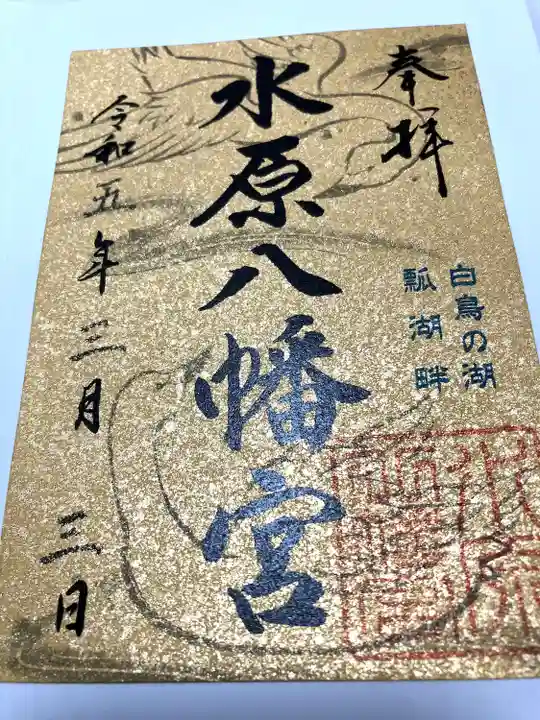 奉拝
白鳥の湖
瓢湖畔
水原八幡宮
令和五年三月三日